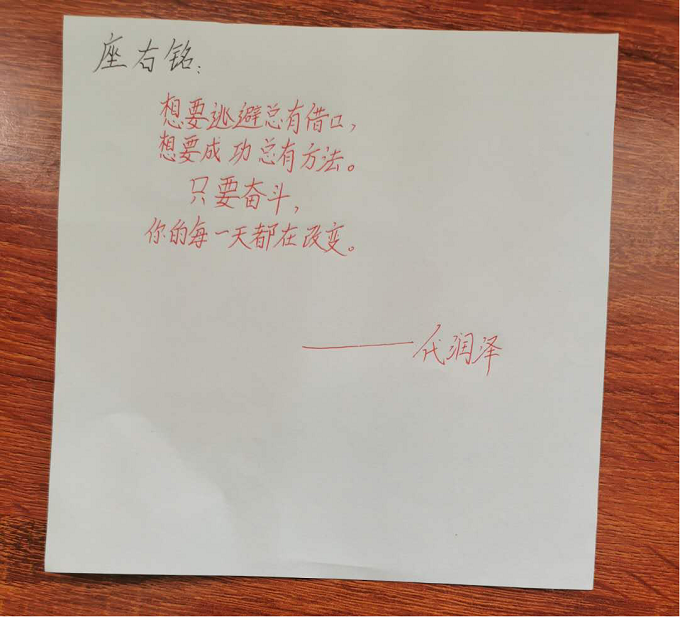 座右铭:
想要逃避总有借口,
想要成功总有方法。
只要奋斗,
你的每一天都在改变。
——代润泽